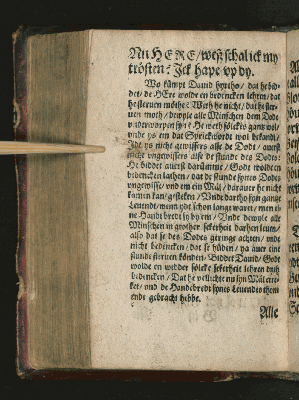 Nu HERE/weß schal ick my
trösten? Ick hape vp dy.
Wo kümpt Dauid hyrtho/ dat he bid-
det/ de HEre wolde en bedencken lehren/ dat
he steruen möthe? Weth he nicht/ dat he ster-
uen moth/ dewyle alle Minschen dem Dode
vnderworpen syn? He weth sölckes gantz wol/
vnde ys em dat Sprickwordt wol bekandt/
Idt ys nicht gewissers alse de Dodt/ auerst
nicht vngewissers alse de stunde des Dodes:
He biddet auerst darümme/ Godt wolde en
bedencken lathen/ dat de stunde synes Dodes
vngewisse/ vnd em ein Mül/ darauer he nicht
kamen kan/ gestecken/ Vnde dat hyr syn gantze
Leuendt/ wenn ydt schon lange waret/ men ei-
ne Handbredt sy by em/ Vnde dewyle alle
Minschen in grother sekerheit darhen leuen/
also dat se des Dodes geringe achten/ vnde
nicht bedencken/ dat se hüden/ ya auer eine
stunde steruen könden/ Biddet Dauid/ Godt
wolde en wedder sölcke sekerheit lehren dyth
bedencken/ Dat he villichte syn Mül errec-
ket/ vnd de Handebredt synes Leuendes thom
ende gebracht hebbe.
Alle